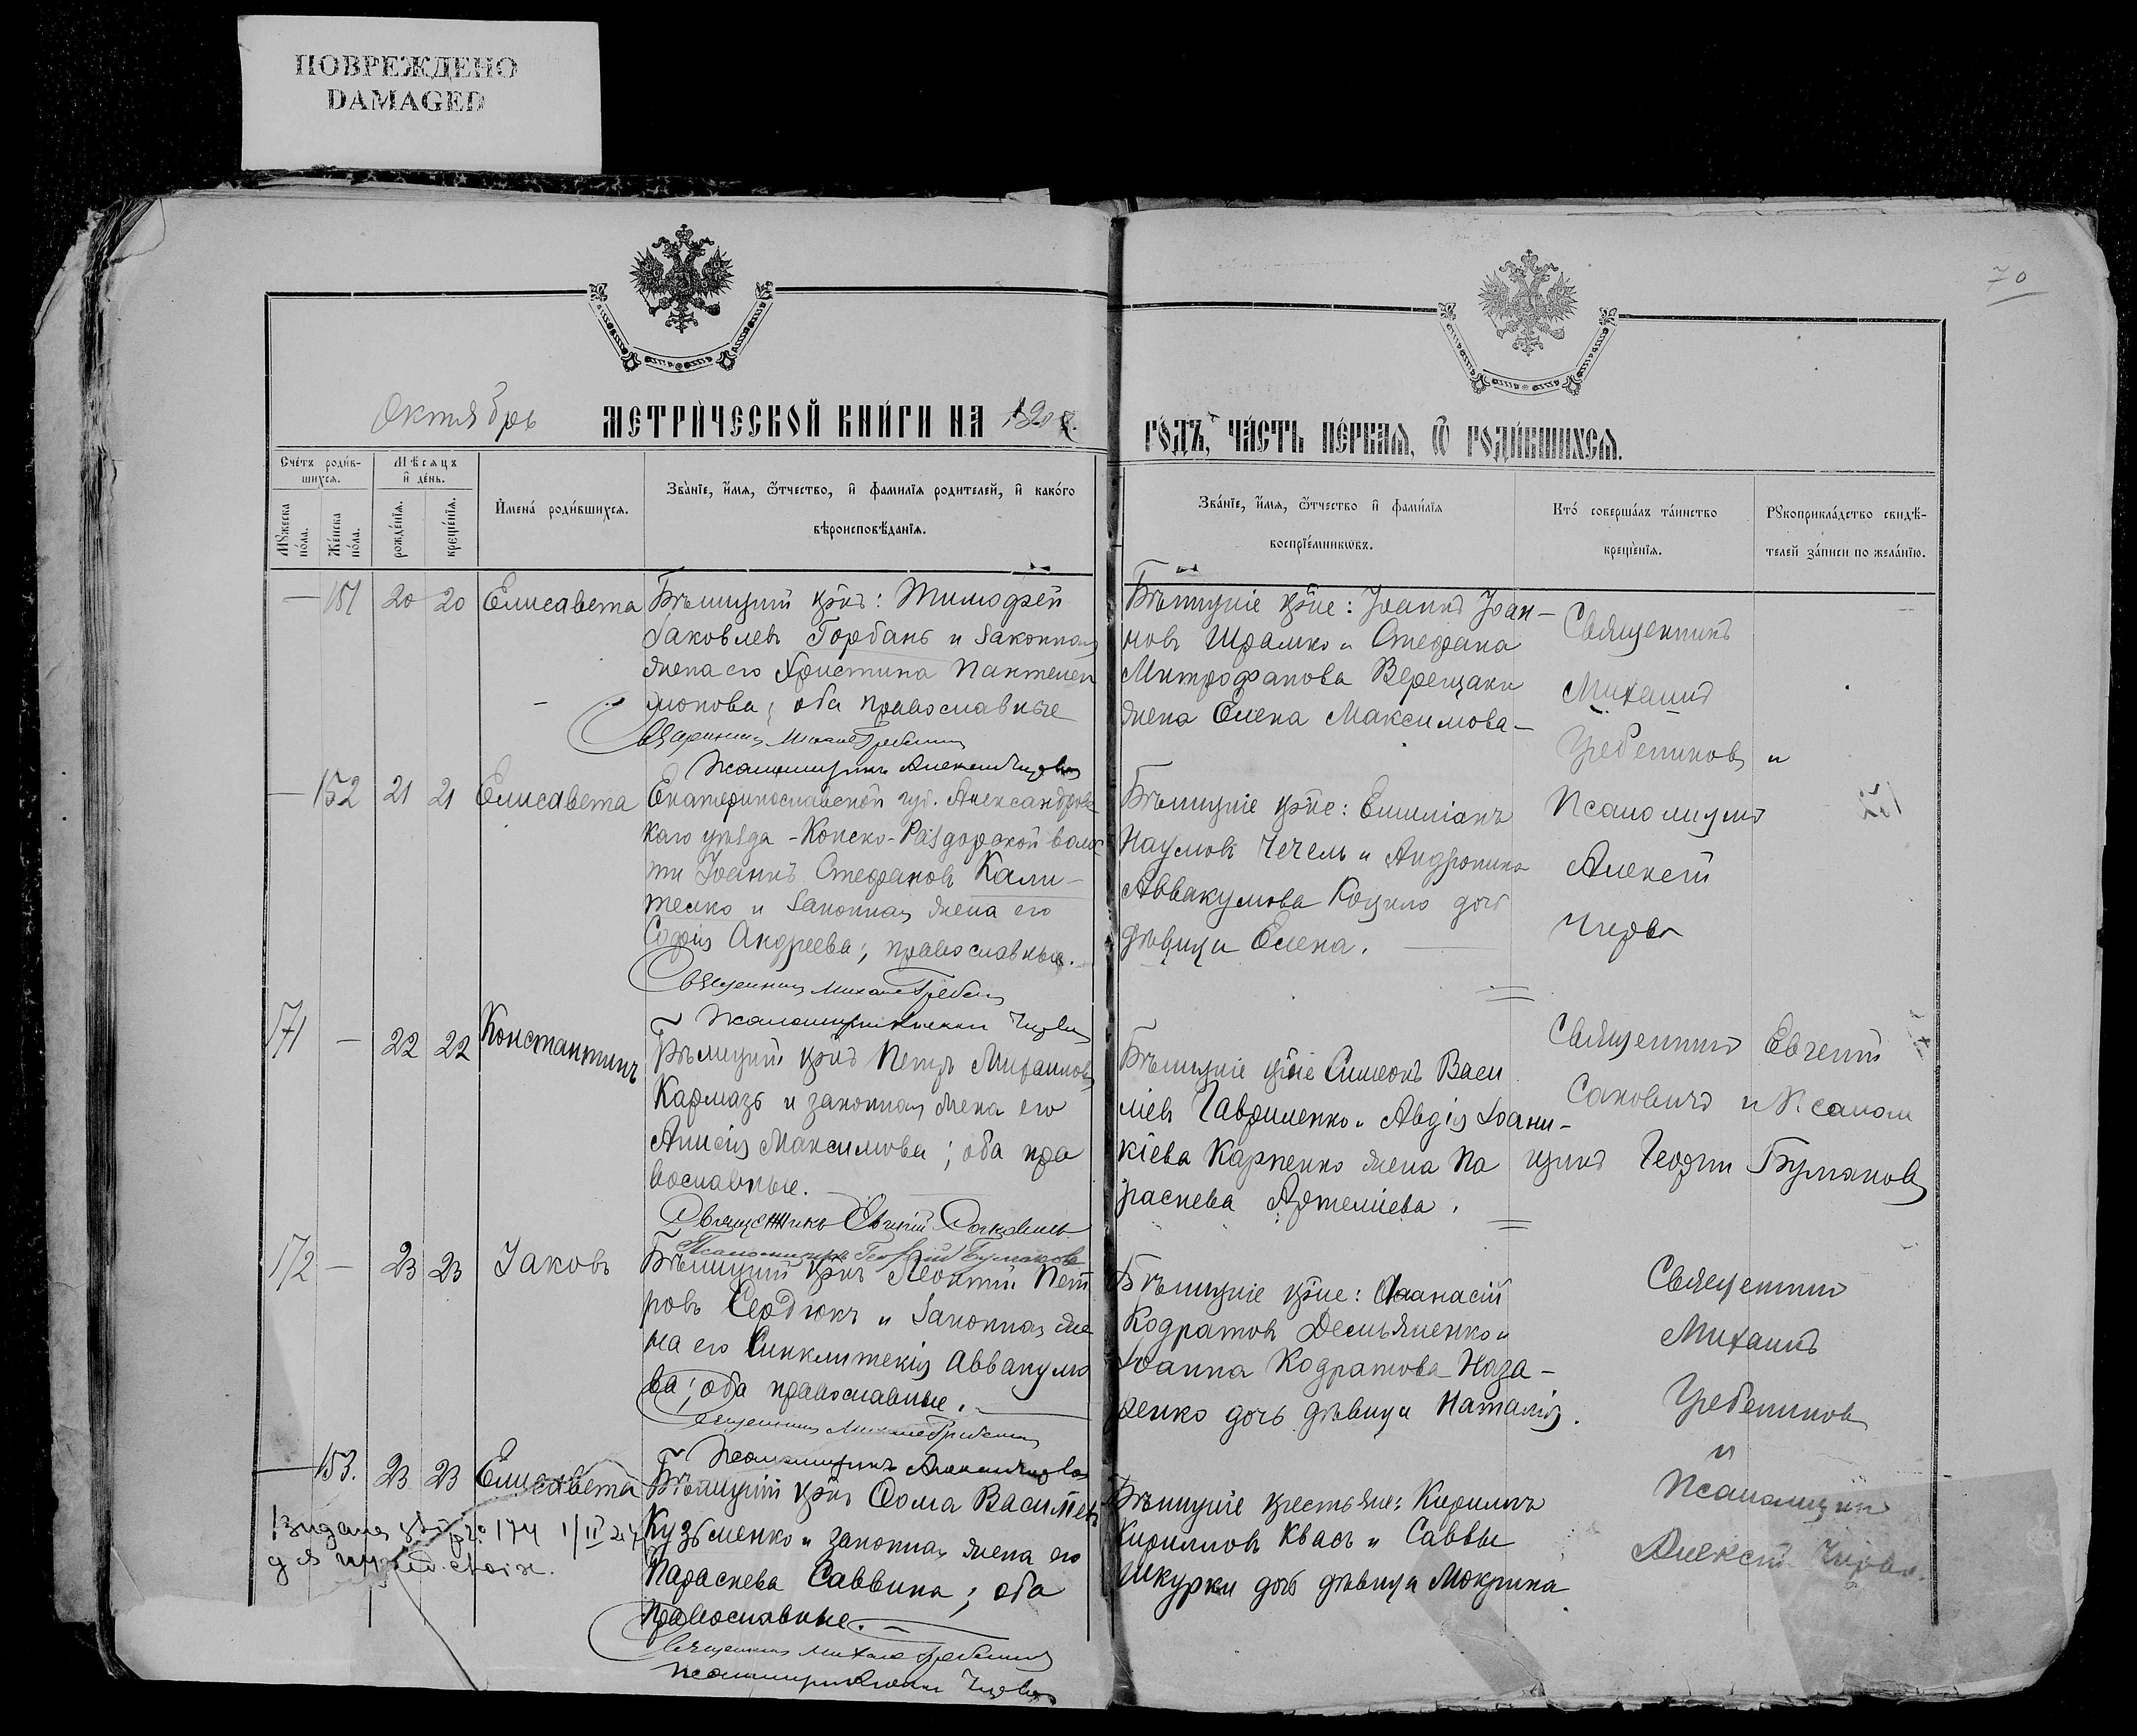 ПОВРЕЖДЕНО
DAMAGED
70
Октябрь
МЕТРИ́ЧЕСКОЙ КНИ́ГИ НА 190
ГОДЪ, ЧА́СТЬ ПЕ́РВАЯ, Ѿ РОДИ́ВШИХСЯ.
Сче́тъ роди́в-
шихся.
Мꙋжеска
по́ла.
Же́нска
по́ла.
Мѣ́сяцъ
и҆ де́нь.
рожде́нїя.
креще́нїя.
И҆мена̀ роди́вшихся.
Зва́нїе, и҆́мя, ѿтчество, и҆ фамилїя родителей, и҆ како́го
вѣроисповѣ́данїя.
Зва́нїе, и҆́мя, ѿтчество и҆ фами́лїя
воспрїе́мникωвъ.
Кто̀ соверша́лъ та́инство
креще́нїя.
Рꙋкоприкла́дство свидѣ́-
телей за́писи по жела́нїю.
— 151 20 20 Елисавета
Бѣлицкій кр̃нъ: Тимофей
Іаковлевъ Горбань и законная
жена его Христина Пантелеи
монова; оба православные
Священникъ Михаилъ Гребениковъ
Псаломщикъ Алексѣй
Бѣлицкіе кр̃не: Іоаннъ Іоан-
новъ Шрамко и Стефана
Митрофанова Верещаки
жена Елена Максимова—
Священникъ
Михаилъ
Гребениковъ и
Псаломщикъ
Алексѣй
— 152 21 21 Елисавета
Екатеринославской губ. Александровс
каго уѣзда - Конско-Раздорской волос
ти Іоаннъ Стефановъ Кали-
тенко и законная жена его
Софія Андреева; православные.
Священникъ Михаилъ Гребениковъ
Псаломщикъ Алексѣй
Бѣлицкіе кр̃не: Емиліанъ
Наумовъ Чечель и Андроника
Аввакумова Коцило дочь
дѣвица Елена.
171 — 22 22 Константинъ
Бѣлицкій кр̃нъ Петръ Михаиловъ
Кармазь и законная жена его
Анисія Максимова; оба пра
вославные.
Священникъ Евгеній Саковичъ
Псаломщикъ Георгій Бумаковъ
Бѣлицкіе кр̃не Симеонъ Васи
ліевъ Гавриленко и Авдія Іоани-
кіева Карпенко жена Па
раскева Артеміева.
Священникъ Евгеній
Саковичъ и Псалом
щикъ Георгій Бумаковъ
172 — 23 23 Іаковъ
Бѣлицкій кр̃нъ Леонтій Пет
ровъ Сердюкъ и законная же
на его Синклитикія Аввакумо
ва; оба православные.
Священникъ Михаилъ Гребениковъ
Псаломщикъ Алексѣй
Бѣлицкіе кр̃не: Аѳанасій
Кодратовъ Демьяненко и
Іоанна Кодратова Наза-
ренко дочь дѣвица Наталія.
Священникъ
Михаилъ
Гребениковъ
и
Псаломщикъ
Алексѣй
— 153. 23 23 Елисавета
Бѣлицкій кр̃нъ Ѳома Василіевъ
Кузьменко и законная жена его
Параскева Саввина; оба
православные.
Священникъ Михаилъ Гребениковъ
Псаломщикъ Алексѣй
Бѣлицкіе крестьяне: Кириллъ
Кирилловъ Квасъ и Саввы
Шкурки дочь дѣвица Мокрина
174 1/II 24